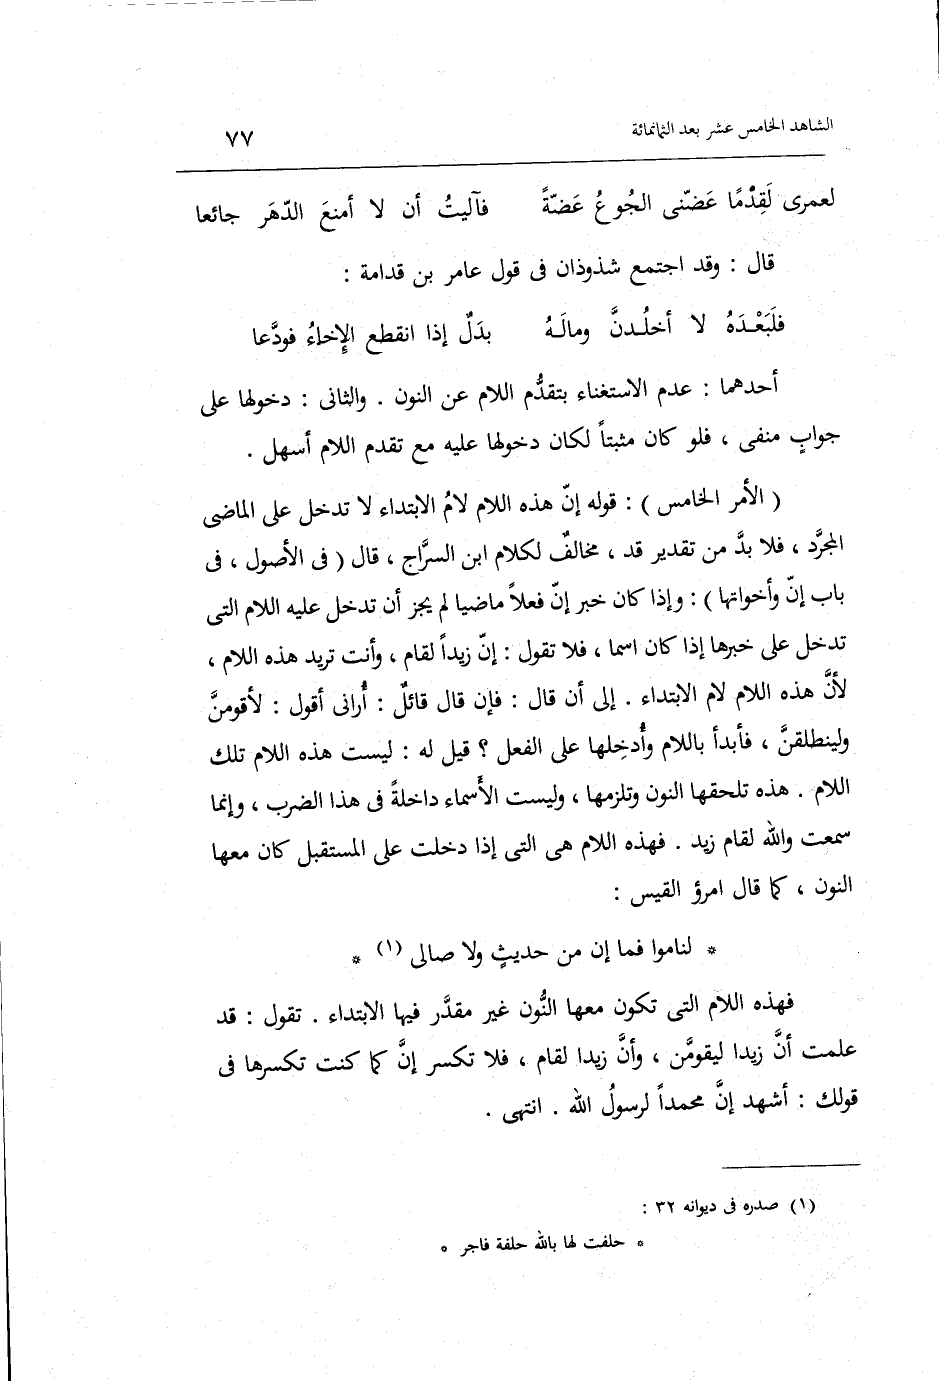 الشاهد الخامس عشر بعد الثمانمائة ٧٧
لعمرى لَقِدْمًا عَضّنى الجُوعُ عَضّةً فآليتُ أن لا أمنعَ الدّهَر جائعا
قال : وقد اجتمع شذوذان فى قول عامر بن قدامة :
فلَبَعْدَهُ لا أخلُدنَّ ومالَهُ بدَلٌ إذا انقطع الإِخاءُ فودَّعا
أحدهما : عدم الاستغناء بتقدُّم اللام عن النون . والثانى : دخولها على
جوابٍ منفى ، فلو كان مثبتاً لكان دخولها عليه مع تقدم اللام أسهل .
( الأمر الخامس ) : قوله إنّ هذه اللام لامُ الابتداء لا تدخل على الماضى
المجرَّد ، فلا بدَّ من تقدير قد ، مخالفٌ لكلام ابن السرَّاج ، قال ( فى الأصول ، فى
باب إنّ وأخواتها ) : وإذا كان خبر إنّ فعلاً ماضيا لم يجز أن تدخل عليه اللام التى
تدخل على خبرها إذا كان اسما ، فلا تقول : إنّ زيداً لقام ، وأنت تريد هذه اللام ،
لأنَّ هذه اللام لام الابتداء . إلى أن قال : فإن قال قائلٌ : أُرانى أقول : لأقومنَّ
ولينطلقنَّ ، فأبدأ باللام وأُدخِلها على الفعل ؟ قيل له : ليست هذه اللام تلك
اللام . هذه تلحقها النون وتلزمها ، وليست الأَسماء داخلةً فى هذا الضرب ، وإنما
سمعت والله لقام زيد . فهذه اللام هى التى إذا دخلت على المستقبل كان معها
النون ، كما قال امرؤ القيس :
* لناموا فما إن من حديثٍ ولا صالى (١) *
فهذه اللام التى تكون معها النُّون غير مقدَّر فيها الابتداء . تقول : قد
علمت أنَّ زيدا ليقومَّن ، وأنَّ زيدا لقام ، فلا تكسر إنَّ كما كنت تكسرها فى
قولك : أشهد إنَّ محمداً لرسولُ الله . انتهى .
(١) صدره فى ديوانه ٣٢ :
* حلفت لها بالله حلفة فاجر *